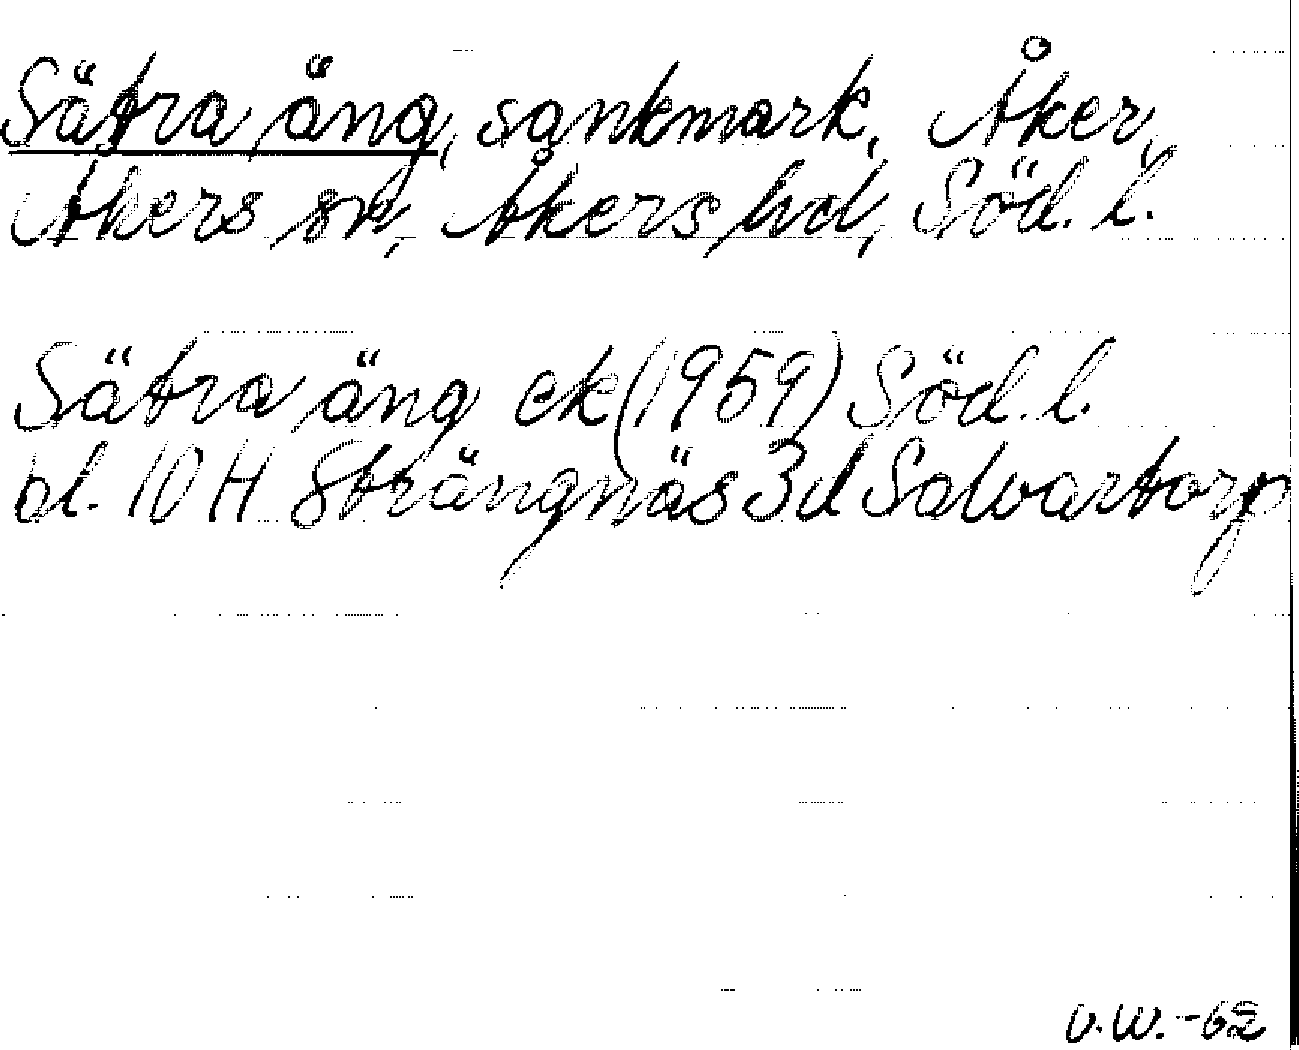 Sätra äng, sankmark, Åker,
Åkers sn, Åkers hd, Söd. l.
Sätra äng ek (1959) Söd. l.
bl. 10 H Strängnäs 3d Salvartorp
V.W.-62